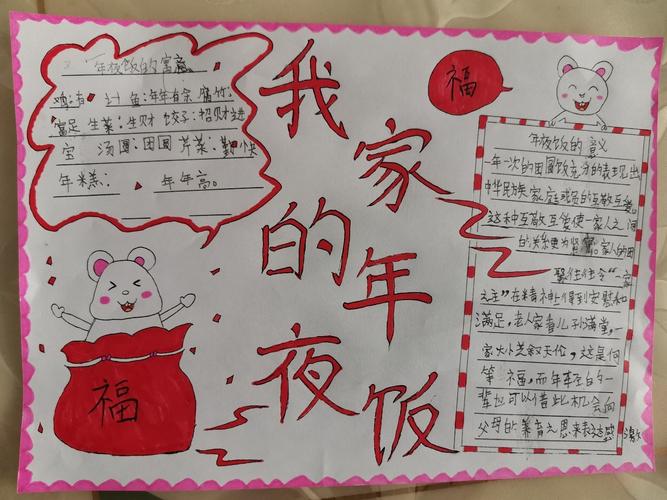 年夜饭的寓意
鸡:有 计 鱼:年年有余 腐竹:
富足 生菜:生财 饺子:招财进
宝 汤圆:团圆 芹菜:勤快
年糕: 年年高。
我家的年夜饭
福
福
年夜饭的意义
一年一次的团圆饭充分的表现出
中华民族家庭成员的互敬互爱。
这种互敬互爱使一家人之间
的关系更为紧密。家人的团
聚往往令“一家
之主”在精神上得到安慰和
满足,老人家看儿子满堂,一
家大小共叙天伦,这是何
等 福,而年轻的一
辈也可以借此机会向
父母的养育之恩来表达感激